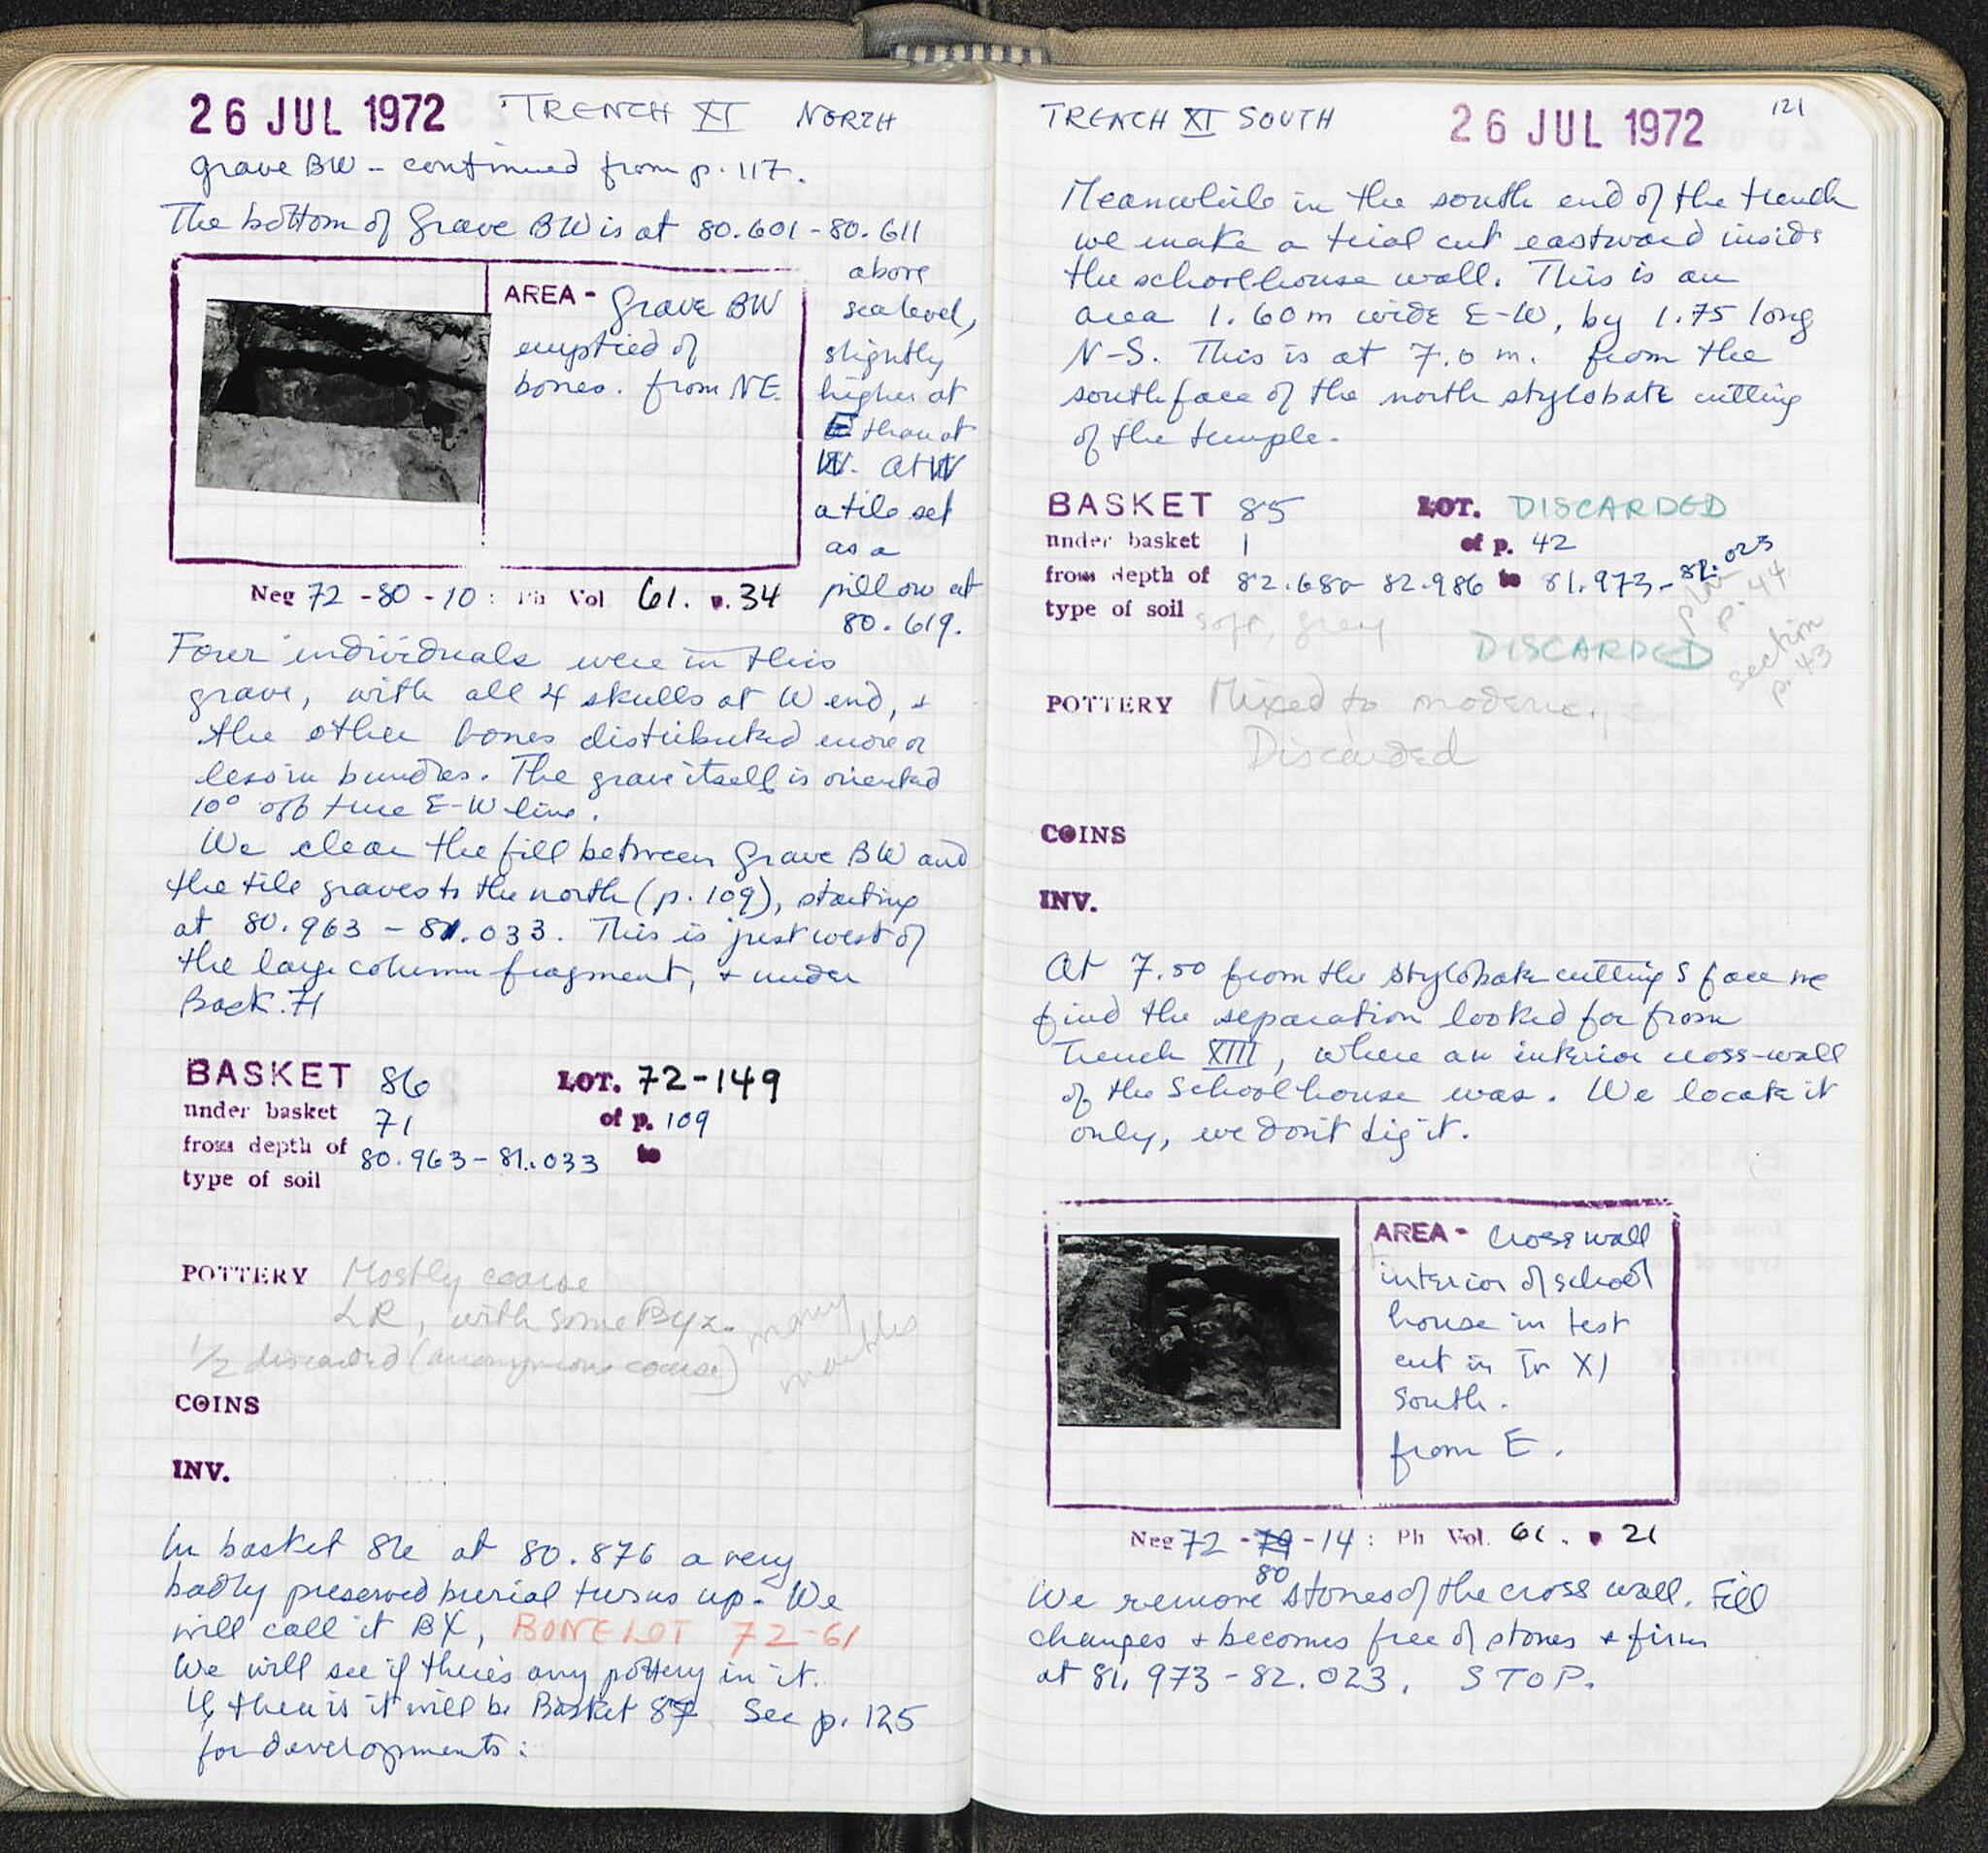 26 JUL 1972 TRENCH XI NORTH
grave BW - continued from p. 117.
The bottom of Grave BW is at 80.601 - 80.611
above
sea level,
slightly
higher at
E than at
W. At W
a tile set
as a
pillow at
80.619.
AREA - Grave BW
emptied of
bones. from NE.
Neg 72 - 80 - 10 : Ph Vol 61. p. 34
Four individuals were in this
grave, with all 4 skulls at W end, +
the other bones distributed more or
less in bundles. The grave itself is oriented
10° off true E-W line.
We clear the fill between Grave BW and
the tile graves to the north (p. 109), starting
at 80.963 - 81.033. This is just west of
the large column fragment, + under
Bask. 71
BASKET 86 LOT. 72-149
under basket 71 of p. 109
from depth of 80.963 - 81.033 to
type of soil
POTTERY Mostly coarse
LR, with some Byz. many
1/2 discarded (anonymous coarse)
COINS
INV.
In basket 86 at 80.876 a very
badly preserved burial turns up. We
will call it BX, BONE LOT 72-61
We will see if there's any pottery in it.
If there is it will be Basket 87 See p. 125
for developments:
TRENCH XI SOUTH 26 JUL 1972 121
Meanwhile in the south end of the trench
we make a trial cut eastward inside
the schoolhouse wall. This is an
area 1.60 m wide E-W, by 1.75 long
N-S. This is at 7.0 m. from the
south face of the north stylobate cutting
of the temple.
BASKET 85 LOT. DISCARDED
under basket 1 of p. 42
from depth of 82.680 - 82.986 to 81.973 - 82.023
type of soil soft, grey
plan
p. 44
section
p. 43
DISCARDED
POTTERY Mixed to modern.
Discarded
COINS
INV.
At 7.50 from the stylobate cutting S face we
find the separation looked for from
Trench XIII, where an interior cross-wall
of the Schoolhouse was. We locate it
only, we don't dig it.
AREA - Cross wall
interior of school
house in test
cut in Tr XI
South.
from E.
Neg 72 - 79 - 14 : Ph Vol. 61. p 21
80
We remove stones of the cross wall. Fill
changes + becomes free of stones + firm
at 81.973 - 82.023. STOP.